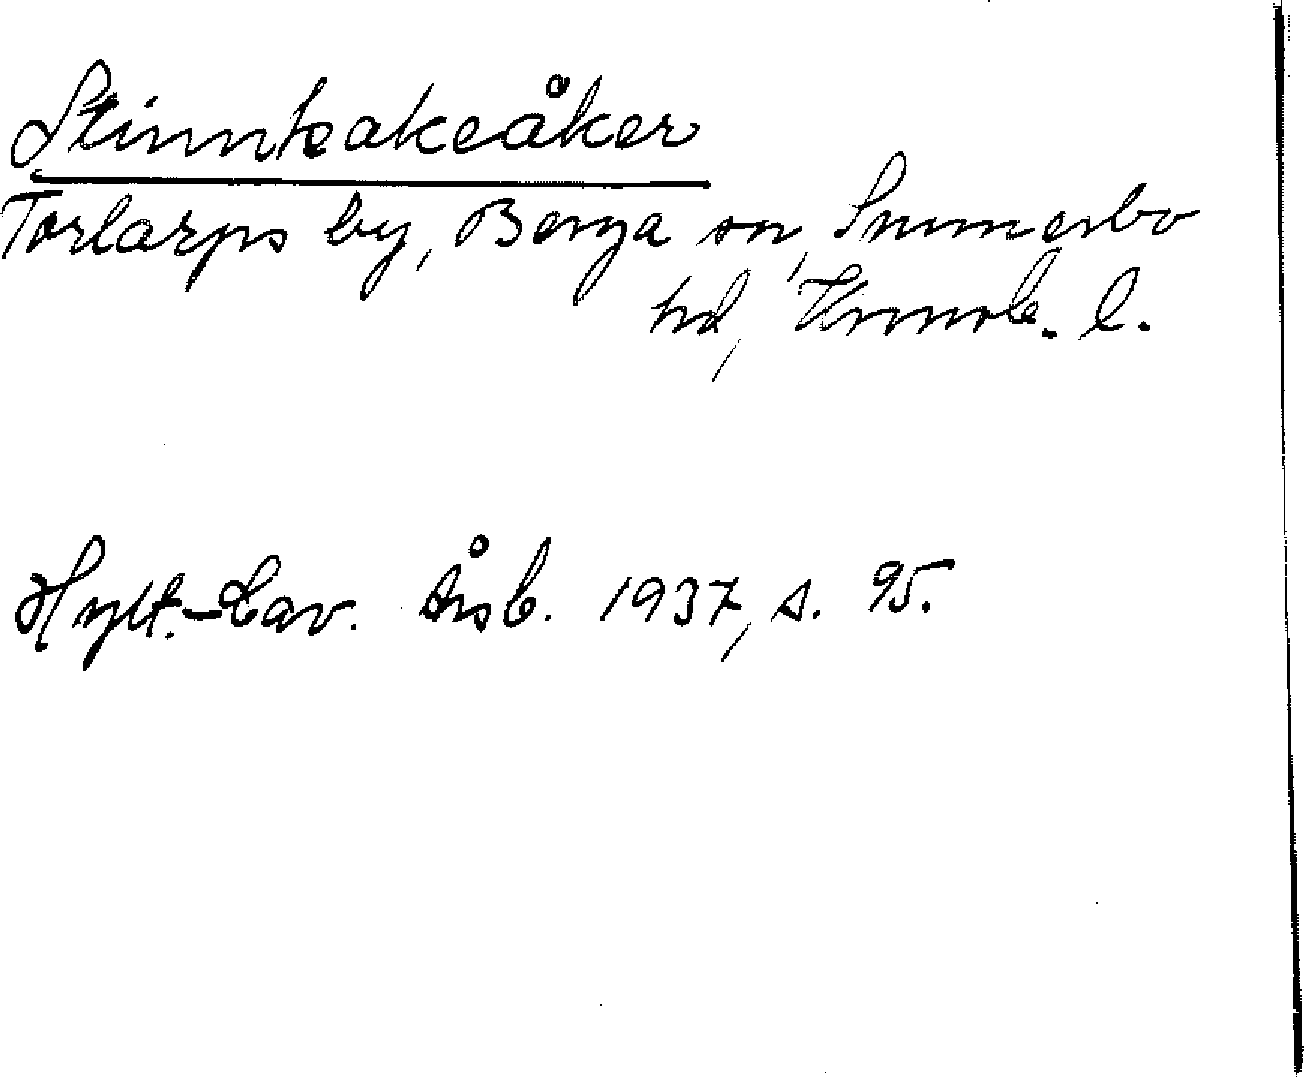 Stinnhakeåker
Torlarps by, Berga sn, Sunnerbo
hd, Kronob. l.
Hylt.-Cav. Årsb. 1937, s. 95.